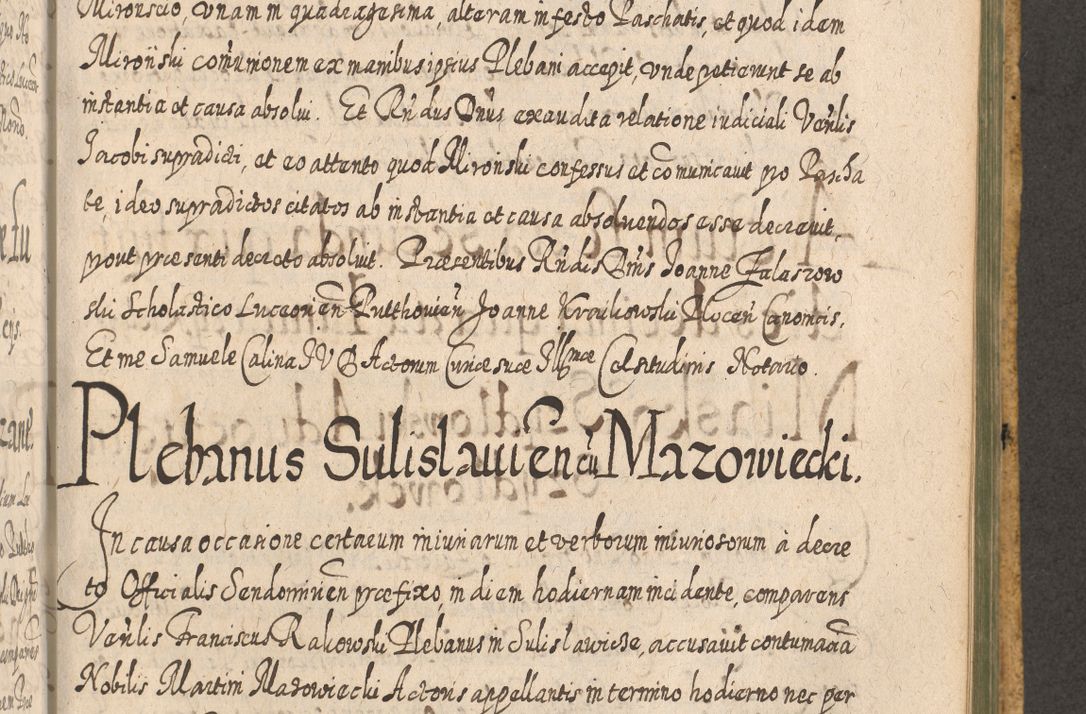 Mironscio, vnam in quadragesima, alteram in festo Paschatis, et quod idem
Mironski com̃unionem ex manibus ipsius Plebani accepit, vnde petierunt se ab
instantia et causa absolui. Et Rñdus Dñus exaudita relatione iudiciali Veñlis
Jacobi supradicti, et eo attento quod Mironski confessus et com̃unicauit pro Pascha
te, ideo supradictos citatos ab instantia et causa absoluendos esse decreuit,
prout præsenti decreto absoluit. Præsentibus Rñdis Dñis Joanne Falaszow
ski Scholastico Luceorien̄ Joanne Kraikowski Plocen̄ Canonicis,
Et me Samuele Calina JVD Actorum Curiæ suæ Illmæ Celsitudinis Notario.
Plebanus Sulislauien̄ cū Mazowiecki.
In causa occasione certarum iniuriarum et verborum iniuriosorum à decre
to Officialis Sendomirien̄ præfixo, in diem hodiernam incidente, comparens
Veñlis Franciscus Rakowski Plebanus in Sulislawice, accusauit contumaciā
Nobilis Martini Mazowiecki Actoris appellantis in termino hodierno nec per